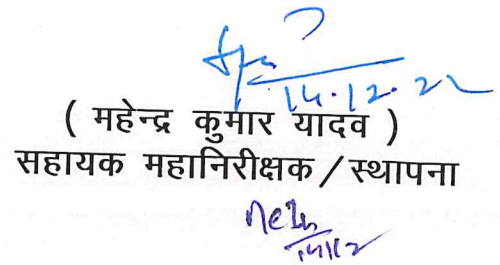 14.12.22
( महेन्द्र कुमार यादव )
सहायक महानिरीक्षक/स्थापना
14/12